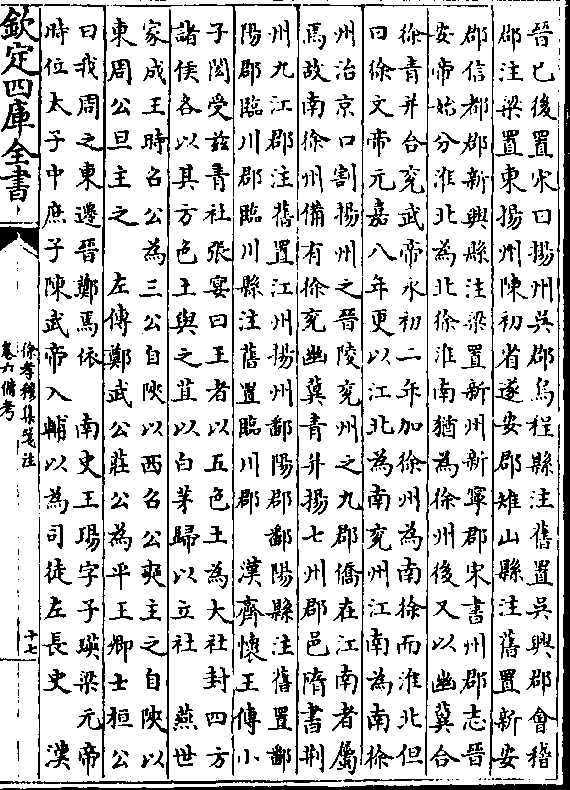 晉已後置宋曰揚州吳郡烏程縣注舊置吳興郡會稽
郡注梁置東揚州陳初省遂安郡雉山縣注舊置新安
郡信都郡新興縣注梁置新州新寧郡宋書州郡志晉
安帝始分淮北為北徐淮南猶為徐州後又以幽冀合
徐青并合兗武帝永初二年加徐州為南徐而淮北但
曰徐文帝元嘉八年更以江北為南兗州江南為南徐
州治京口割揚州之晉陵兗州之九郡僑在江南者屬
焉故南徐州備有徐兗幽冀青并揚七州郡邑隋書荆
州九江郡注舊置江州揚州鄱陽郡鄱陽縣注舊置鄱
陽郡臨川郡臨川縣注舊置臨川郡　漢齊懷王傳小
子閎受兹青社張宴曰王者以五色土為大社封四方
諸侯各以其方色土與之苴以白茅歸以立社　燕世
家成王時召公為三公自陝以西召公奭主之自陝以
東周公旦主之　左傳鄭武公莊公為平王卿士桓公
曰我周之東遷晉鄭焉依　南史王瑒字子瑛梁元帝
時位太子中庶子陳武帝入輔以為司徒左長史　漢
欽定四庫全書
徐孝穆集箋注
卷六備考
十七